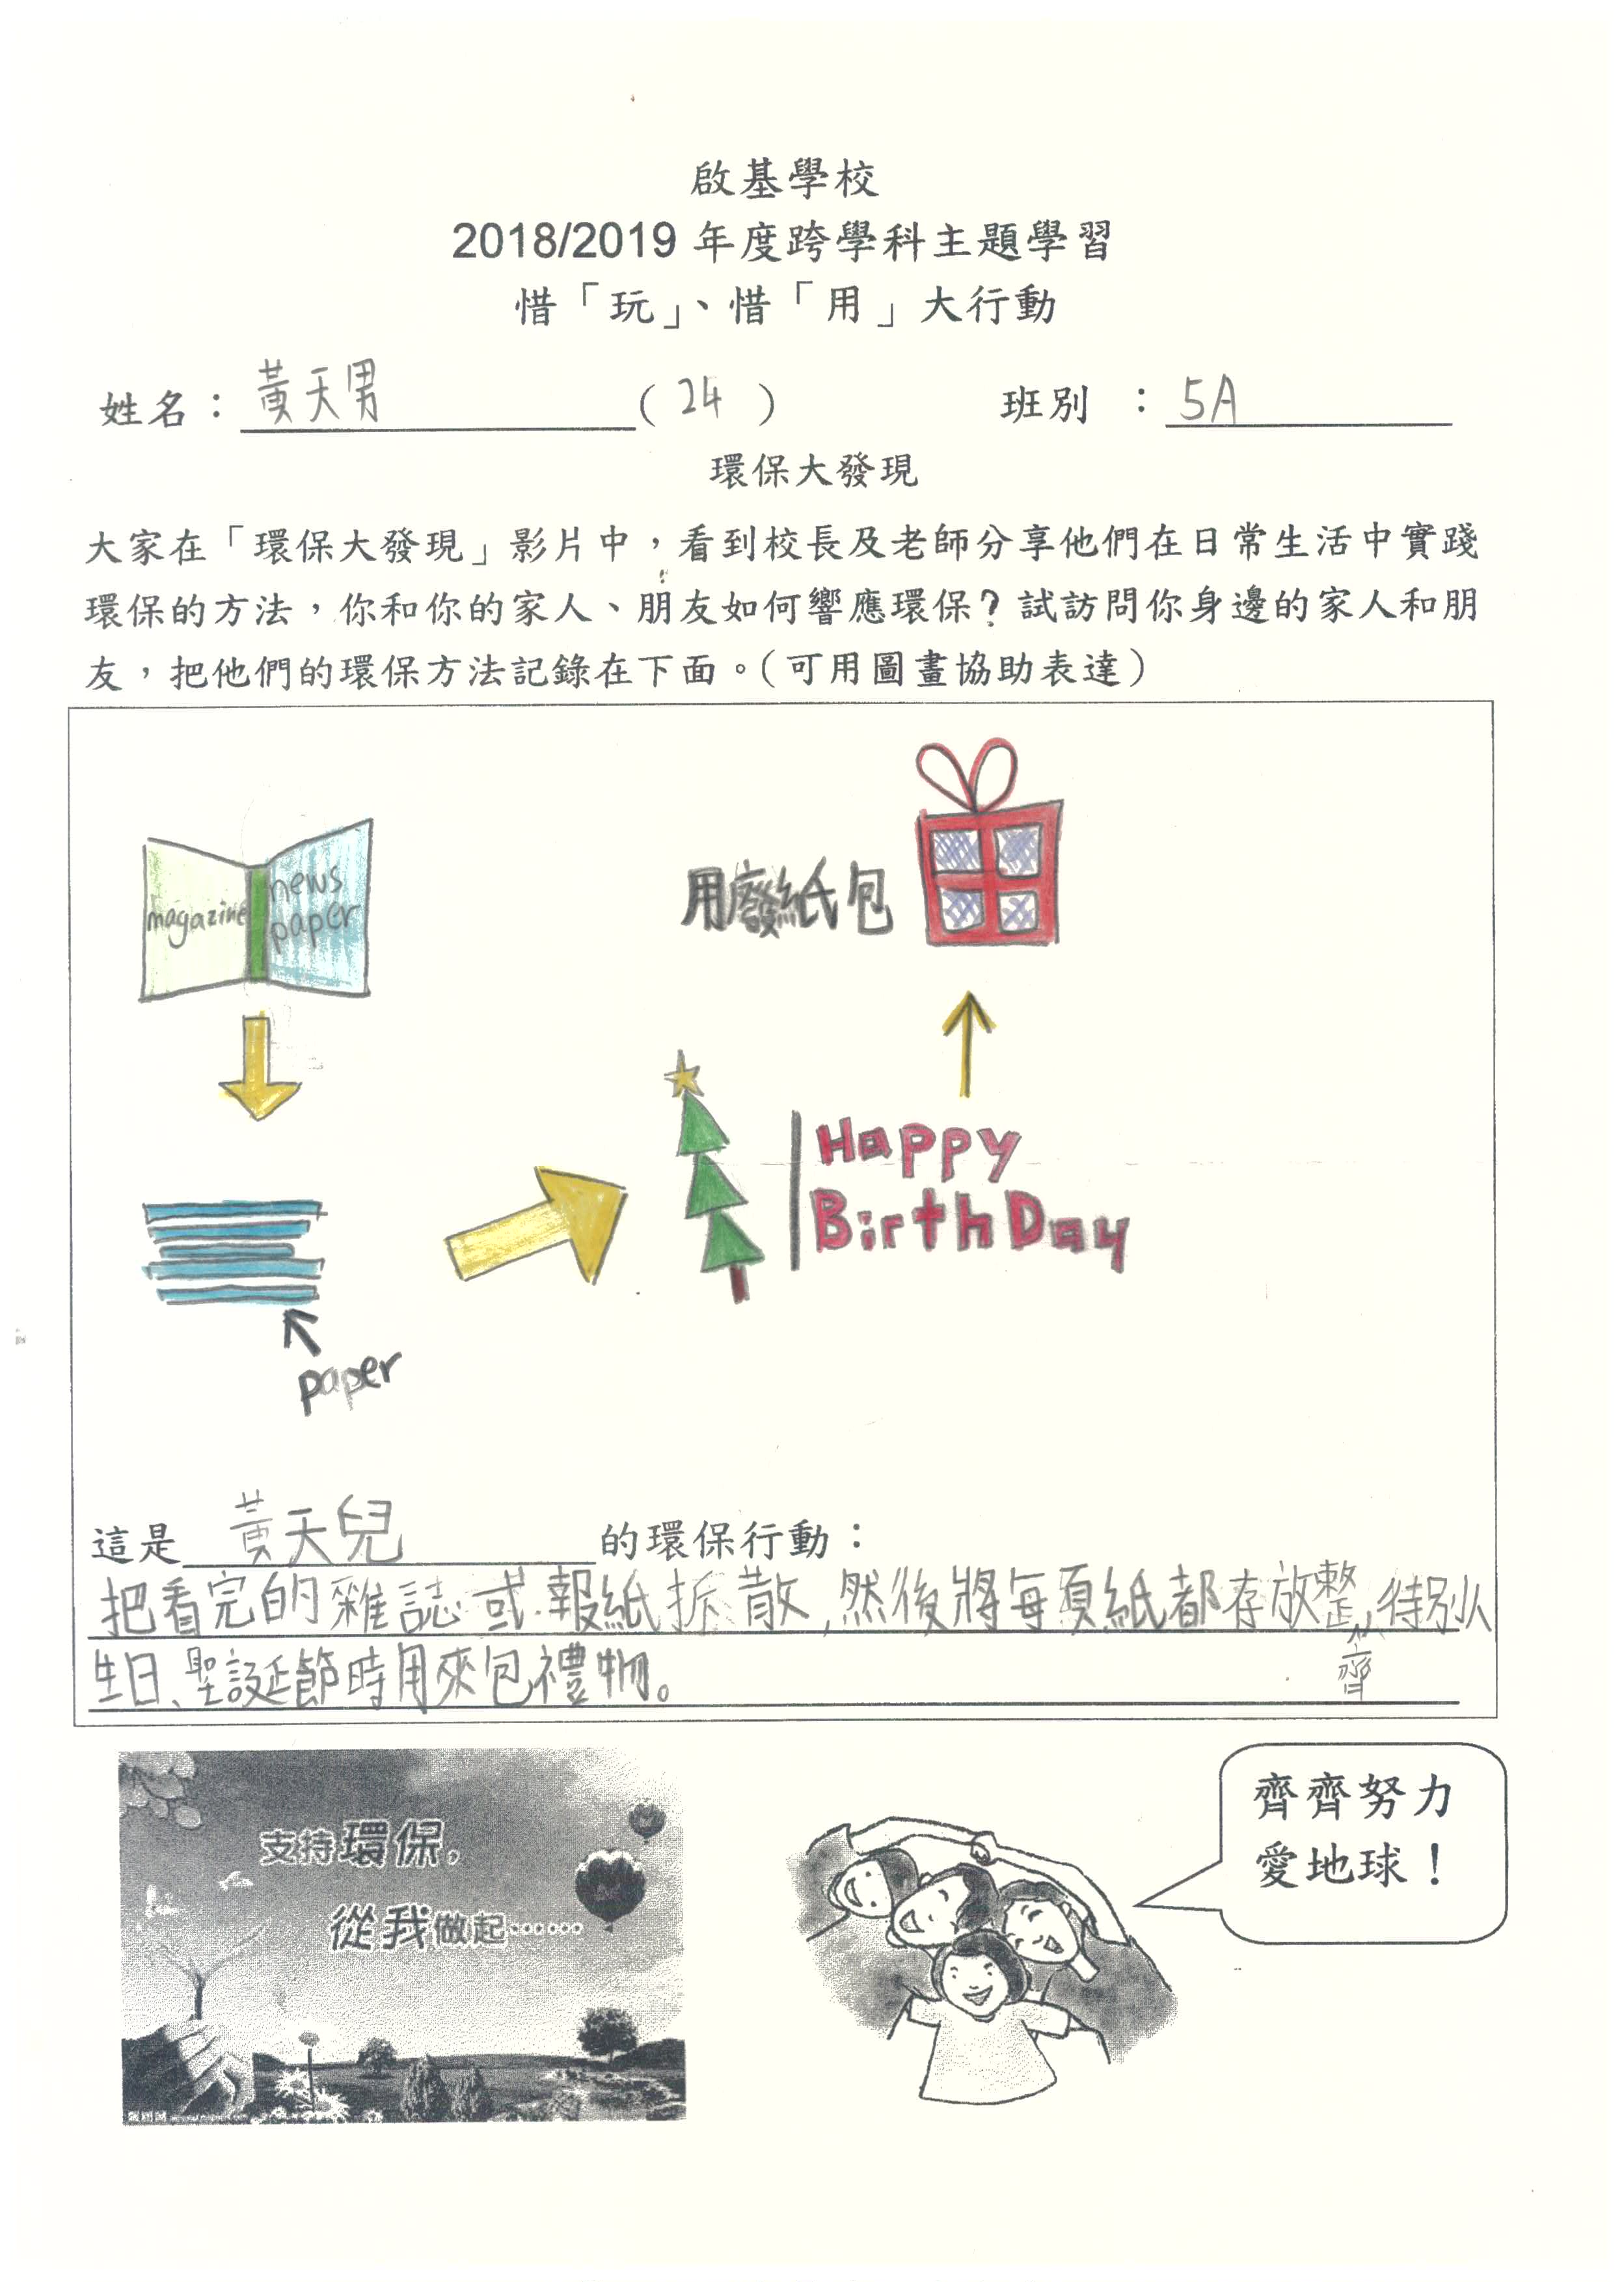 啟基學校
2018/2019 年度跨學科主題學習
惜「玩」、惜「用」大行動
姓名：黃天男（24） 班別：5A
環保大發現
大家在「環保大發現」影片中，看到校長及老師分享他們在日常生活中實踐
環保的方法，你和你的家人、朋友如何響應環保？試訪問你身邊的家人和朋
友，把他們的環保方法記錄在下面。（可用圖畫協助表達）
magazine
news
paper
用廢紙包
Happy
BirthDay
paper
這是 黃天兒 的環保行動：
把看完的雜誌或報紙拆散，然後將每頁紙都存放整齊，待別人
生日、聖誕節時用來包禮物。
支持環保，
從我做起……
齊齊努力
愛地球！